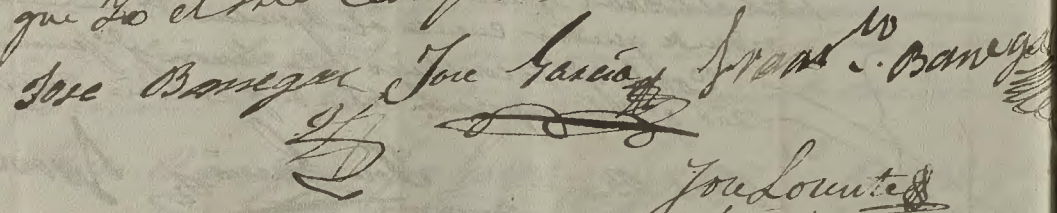 que Yo el
Jose Banegas Jose Garcia Fran.co Banegas
Jose Lorente